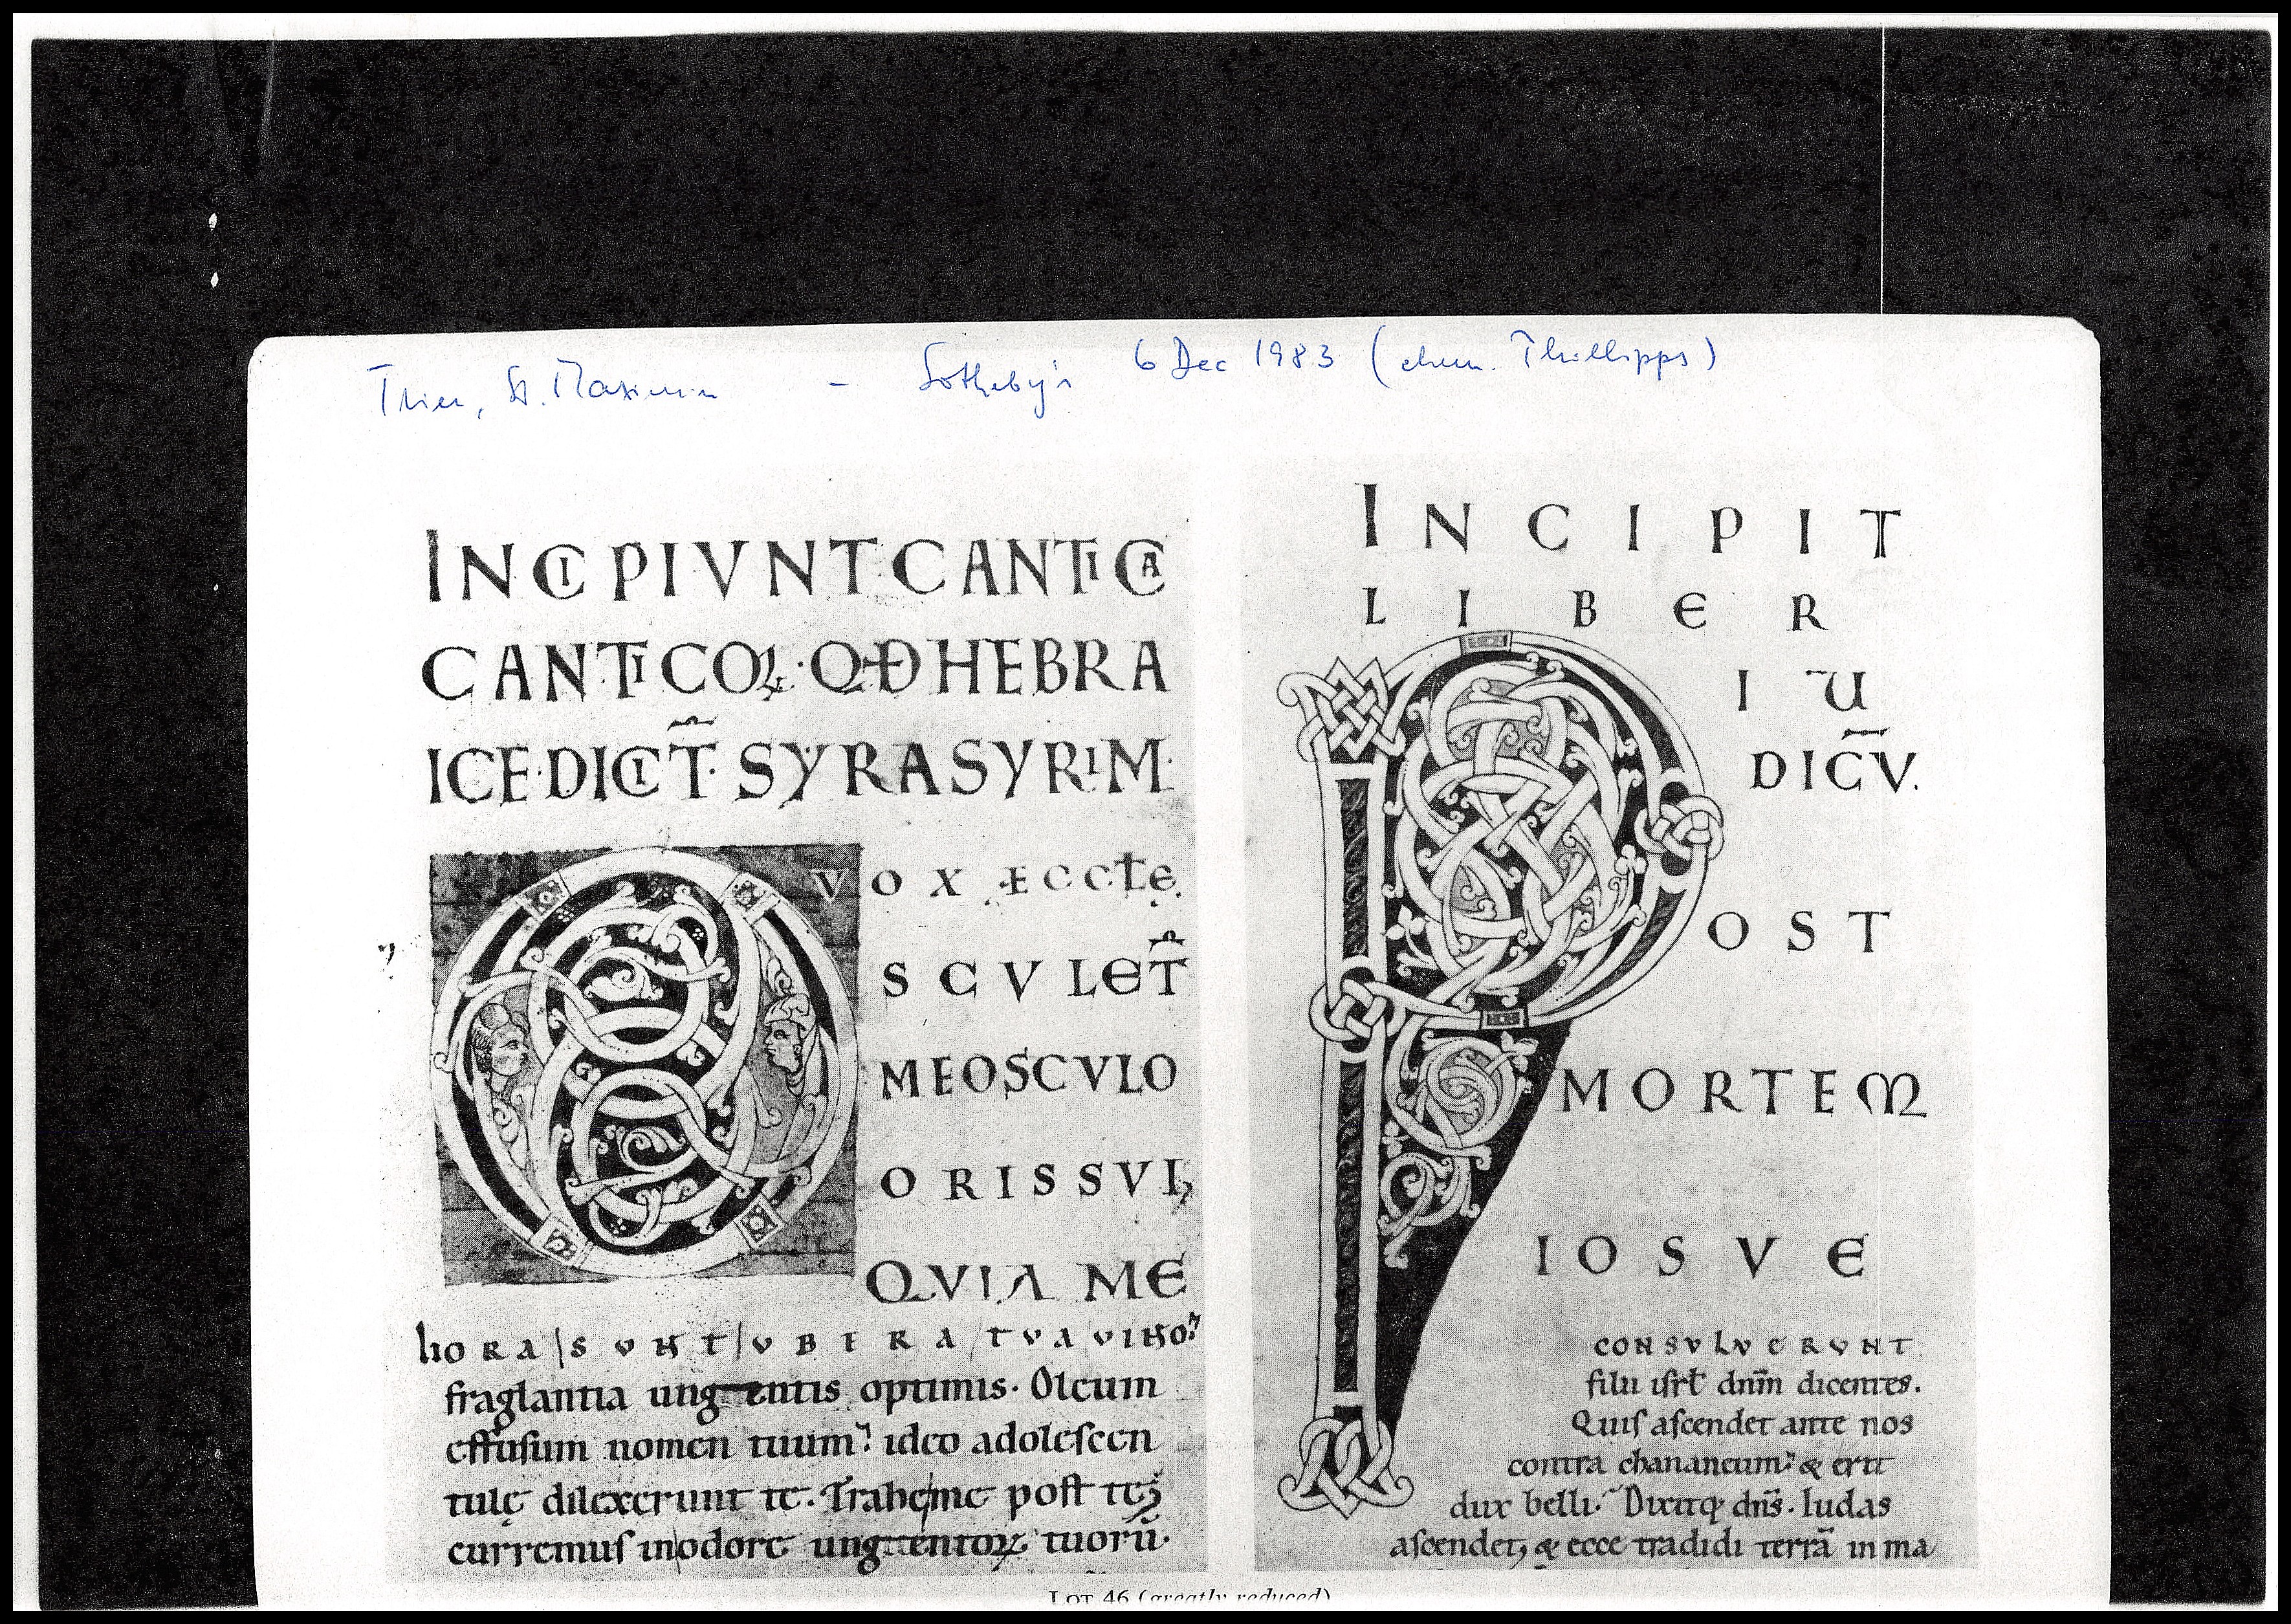 Trier, St. Maximin – Sotheby's 6 Dec 1983 (ehem. Phillipps)
INCIPIVNT CANTICA
CANTICOꝜ·QĐ HEBRA
ICE·DICIT̃· SYRASYRIM·
VOX ÆCCƚE.
OSCVLET̃
ME OSCVLO
ORIS SVI;
QVIA ME
liORA SVNT VBERA TVA VINO?
fraglantia ungentis optimis· Oleum
effusum nomen tuum? ideo adolescen
tulę dilexerunt te. Trahe me post te;
curremus in odore ungentoꝝ tuorū·
INCIPIT
LIBER
IU
DICV̄.
POST
MORTEM
IOSVE
CONSVLVERVNT
filii isrƚ dnm̄ dicentes.
Quis ascendet ante nos
contra chananeum? & erit
dux belli? Dixitq; dn̄s. Iudas
ascendet; & ecce tradidi terrā in ma
LOT 46 (greatly reduced)